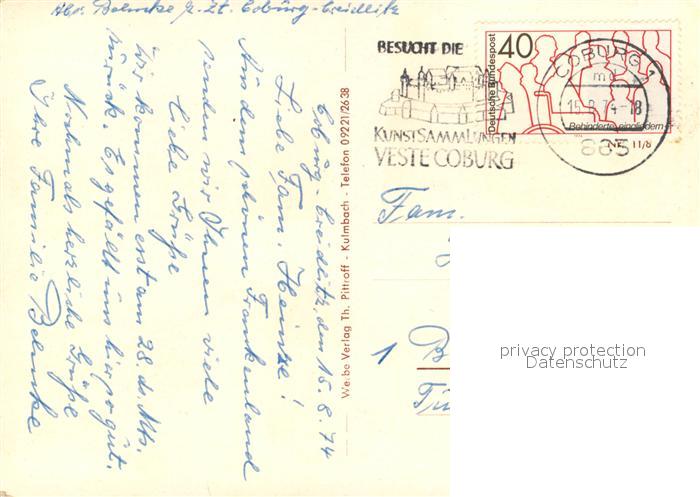 Abs. Behncke z. Zt. Coburg-Creidlitz
Coburg-Creidlitz, den 15.8.74
Liebe Fam. Heintze!
Aus dem schönen Frankenland
senden wir Ihnen viele
liebe Grüße
Wir kommen erst am 28. ds. Mts.
zurück. Es gefällt uns hier so gut.
Nochmals herzliche Grüße
Ihre Familie Behncke
We-be Verlag Th. Pittroff - Kulmbach - Telefon 09221/2638
BESUCHT DIE
KUNSTSAMMLUNGEN
VESTE COBURG
Deutsche Bundespost
40
Behinderte eingliedern
COBURG 1
mc
15.8.74-18
863
Nr. 11/8
Fam.
1
privacy protection
Datenschutz